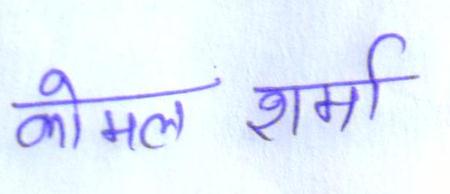 कोमल शर्मा